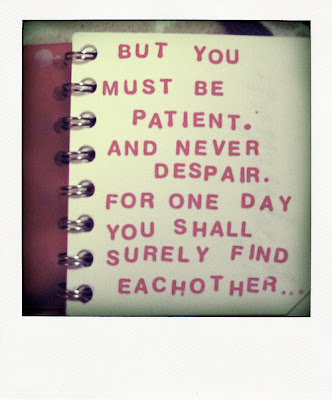 BUT YOU
MUST BE
PATIENT.
AND NEVER
DESPAIR.
FOR ONE DAY
YOU SHALL
SURELY FIND
EACHOTHER...